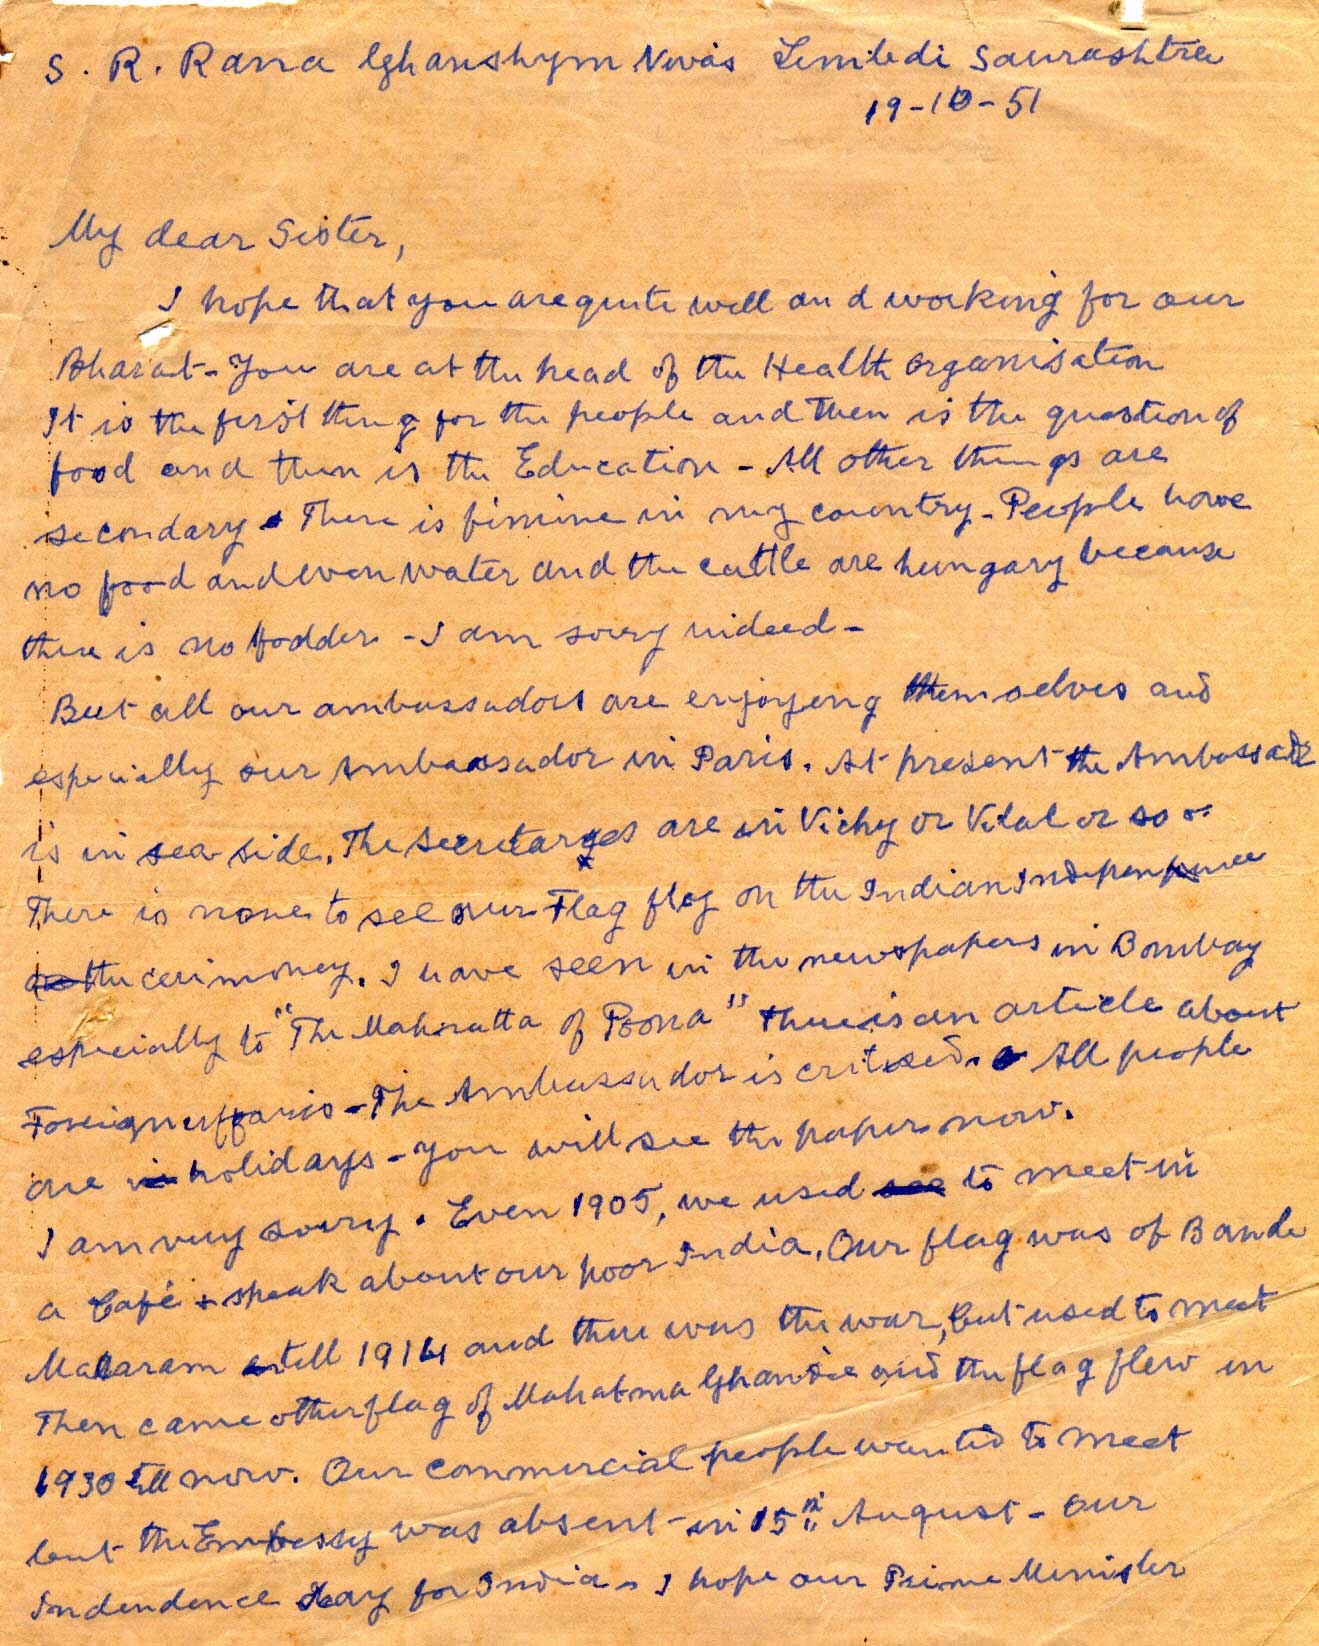 S. R. Rana Ghanshym Nivas Limbdi Saurashtra
19-10-51
My dear Sister,
I hope that you are quite well and working for our
Bharat - You are at the head of the Health Organisation
It is the first thing for the people and then is the question of
food and then is the Education - All other things are
secondary. There is fimine in my country - People have
no food and even water and the cattle are hungary because
there is no fodder - I am sorry indeed -
But all our ambassadors are enjoying themselves and
especially our Ambaasador in Paris. At present the Ambassador
is in sea side. The Secretaryes are in Vichy or Vital or so or
There is none to see our Flag fleg on the Indian Independence
the cerimoney. I have seen in the newspapers in Bombay
especially to "The Mahratta of Poona" there is an article about
Foreign affairs - The Ambassador is critsed. All people
are holidays - You will see the paper now.
I am very sorry. Even 1905, we used to meet in
a Café + speak about our poor India. Our flag was of Bande
Mataram till 1914 and there was the war, but used to meet
Then came other flag of Mahatma Ghandie and the flag flew in
1930 till now. Our commercial people wanted to meet
but the Embessy was absent - in 15th August - Our
Indendence day for India - I hope our Prime Minister